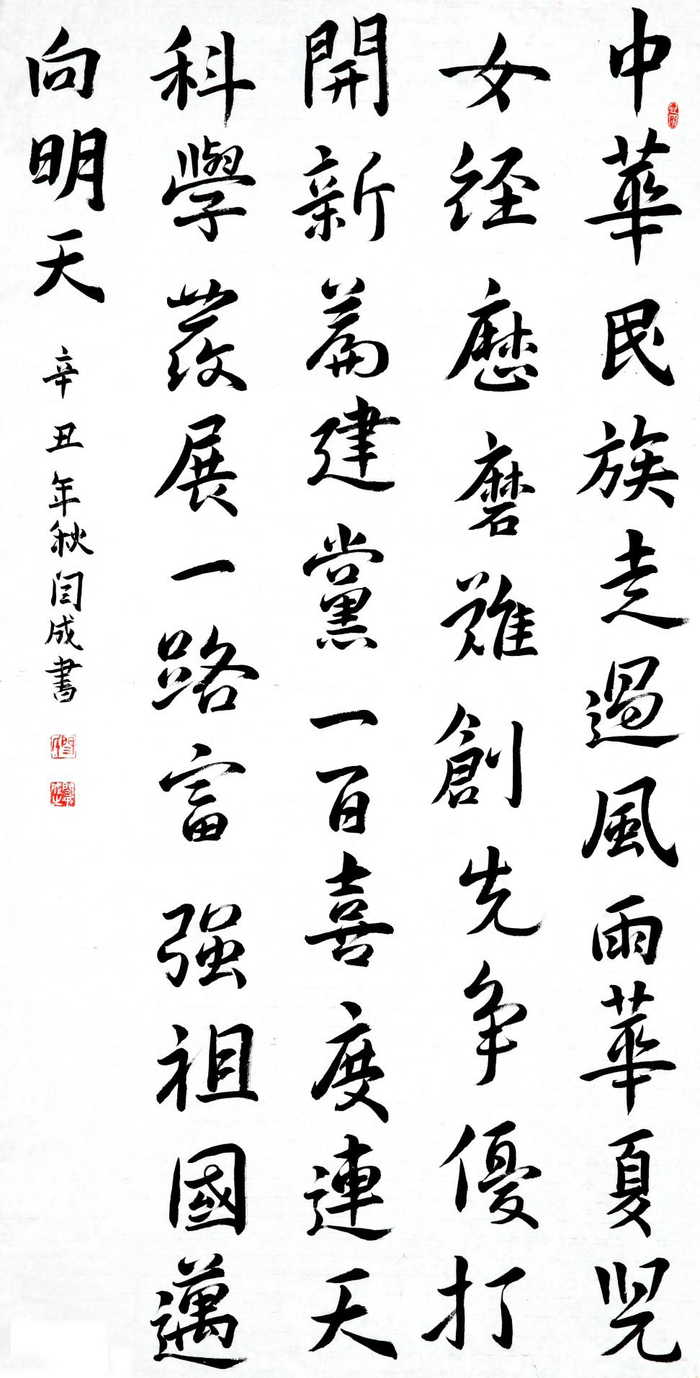 中華民族走過風雨華夏兒
女經歷磨難創先争優打
開新篇建黨一百喜度連天
科學發展一路富强祖國邁
向明天
辛丑年秋闫成書